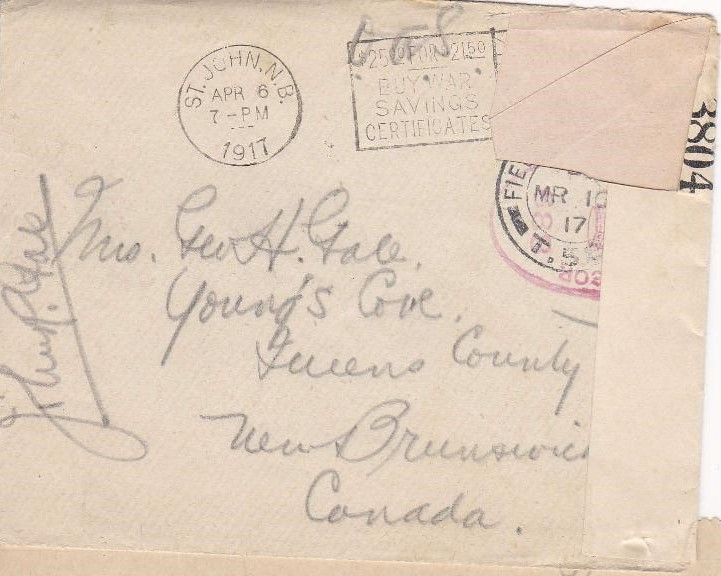 O.A.S.
ST. JOHN, N.B.
APR 6
7-PM
1917
$25.00 FOR $21.50
BUY WAR
SAVINGS
CERTIFICATES
3804
FIE
MR 10
17
T.
Mrs. Geo H. Gale.
Young's Cove.
Queens County
New Brunswick
Canada.